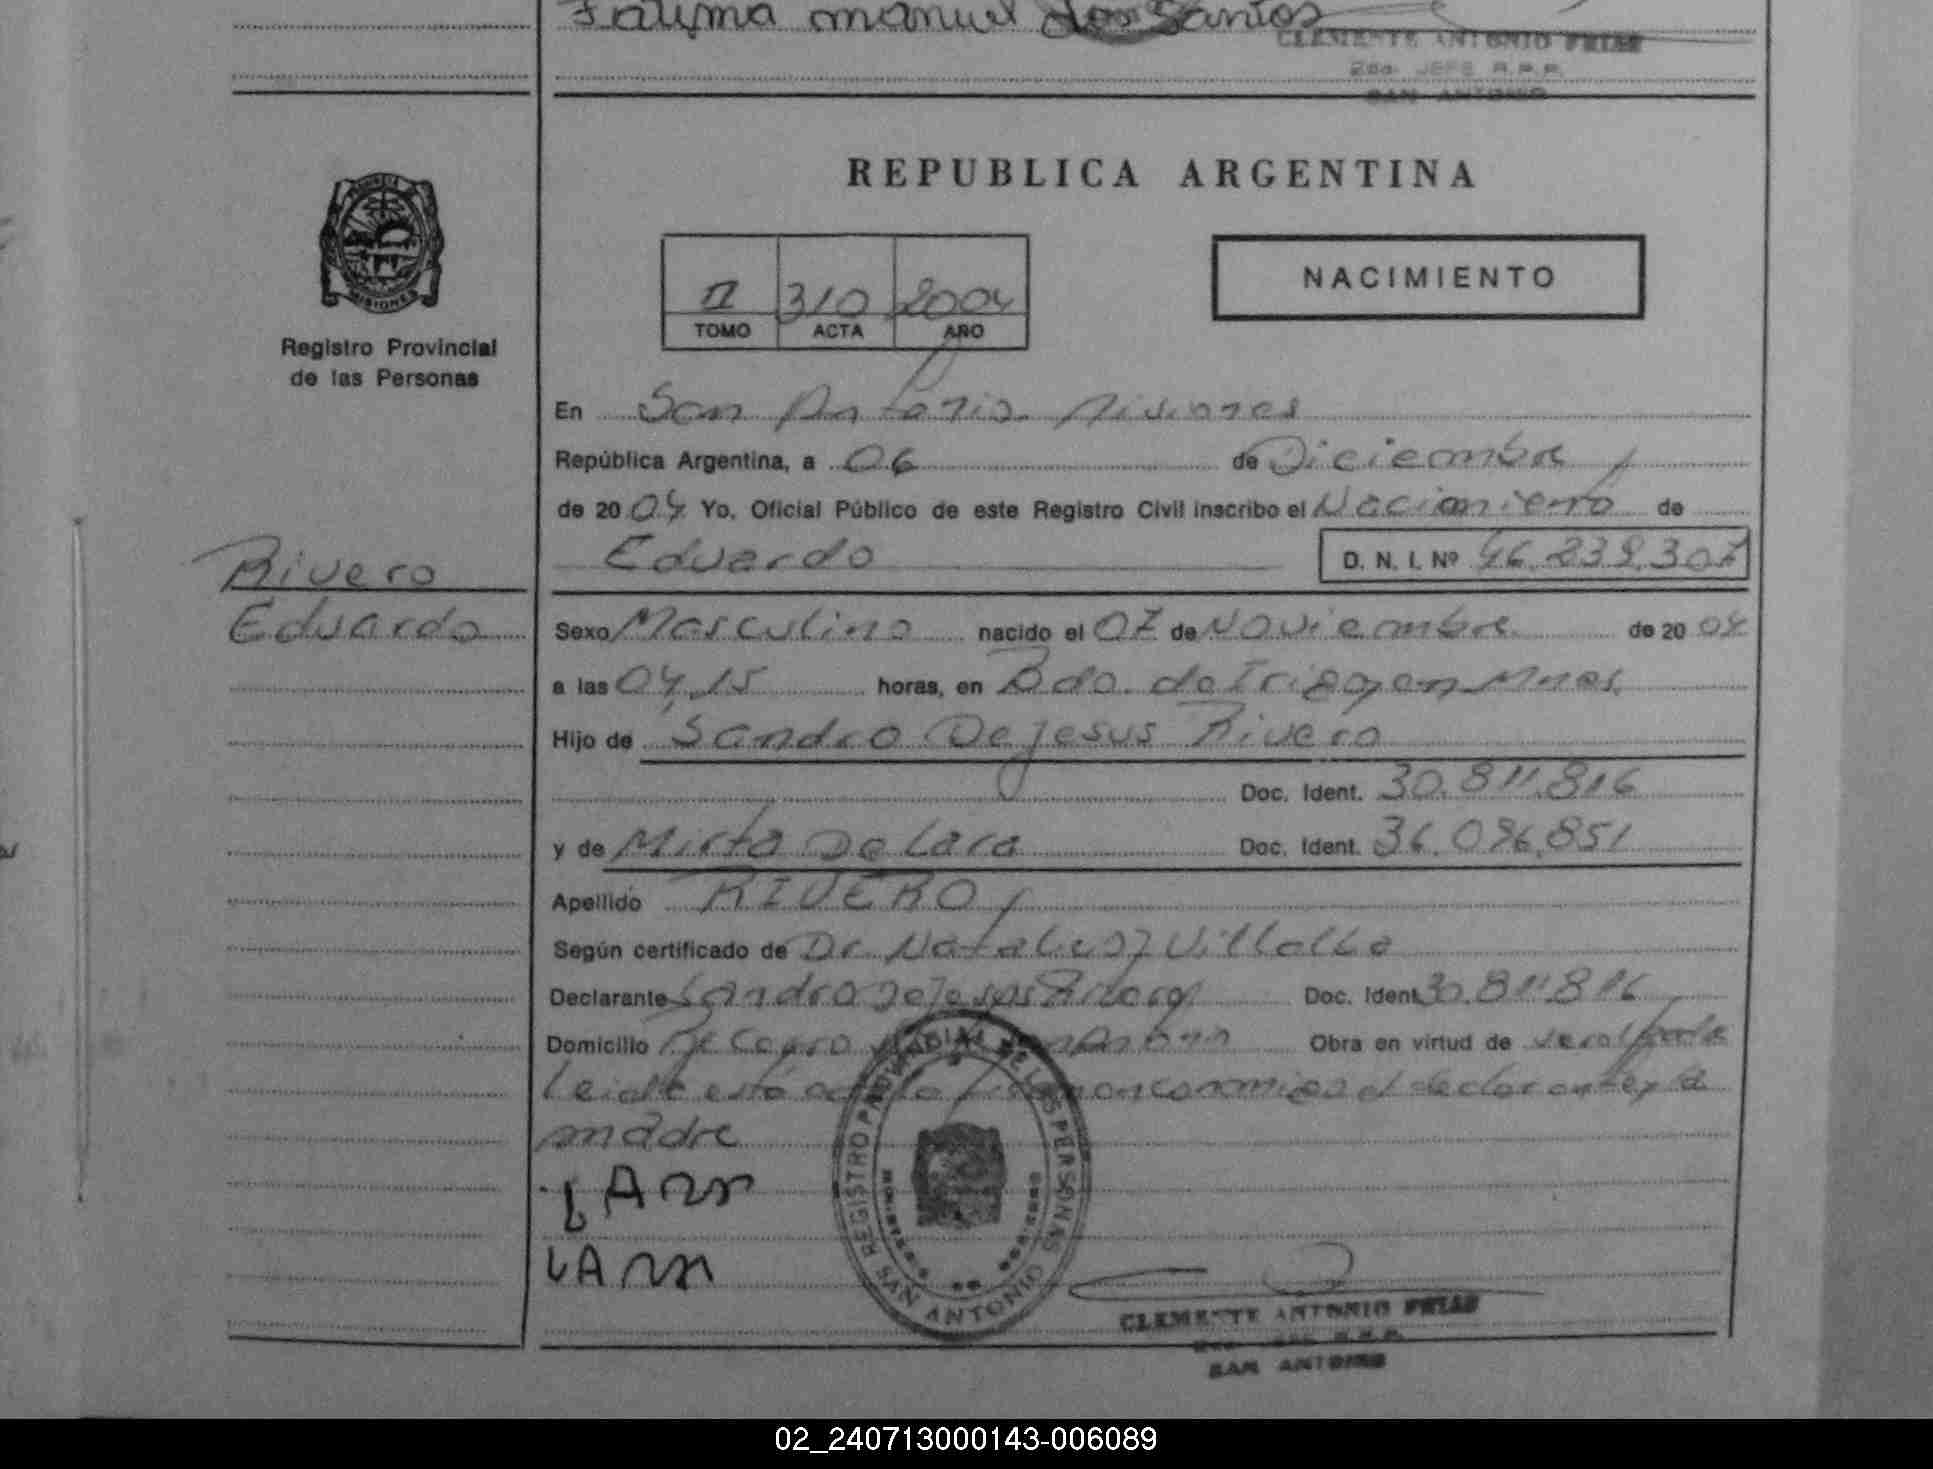 Fatima manuel dos Santos
CLEMENTE ANTONIO FRIAS
2do. JEFE R.P.P.
SAN ANTONIO
REPUBLICA ARGENTINA
PROVINCIA
MISIONES
II 310 2004
TOMO ACTA AÑO
NACIMIENTO
Registro Provincial
de las Personas
En San Antonio Misiones
República Argentina, a 06 de Diciembre
de 2004 Yo, Oficial Público de este Registro Civil inscribo el Nacimiento de
Rivero
Eduardo
Eduardo D. N. I. Nº 46.239.307
Sexo Masculino nacido el 07 de Noviembre de 2004
a las 04,15 horas, en Bdo. de Irigoyen Mnes.
Hijo de Sandro De Jesus Rivero
Doc. Ident. 30.811.816
y de Mirta De Lara Doc. Ident. 36.096.851
Apellido RIVERO
Según certificado de Dr. Villalba
Declarante Sandro De Jesus Rivero Doc. Ident. 30.811.816
Domicilio San Antonio Obra en virtud de
Leida esta acta firman conmigo el declarante y la
madre
REGISTRO PROVINCIAL DE LAS PERSONAS
SAN ANTONIO
CLEMENTE ANTONIO FRIAS
2do. JEFE R.P.P.
SAN ANTONIO
02_240713000143-006089